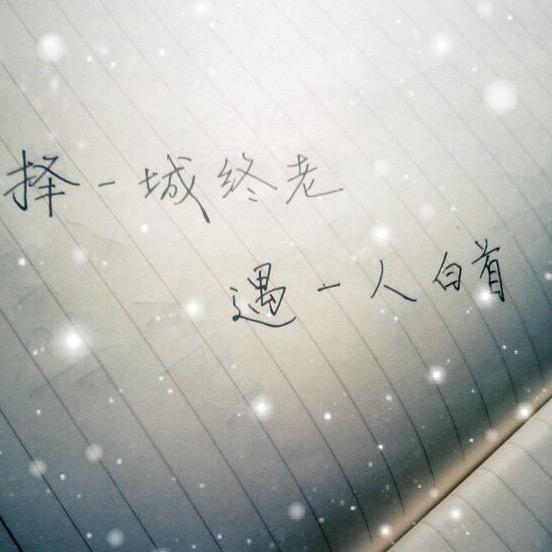 择一城终老
遇一人白首